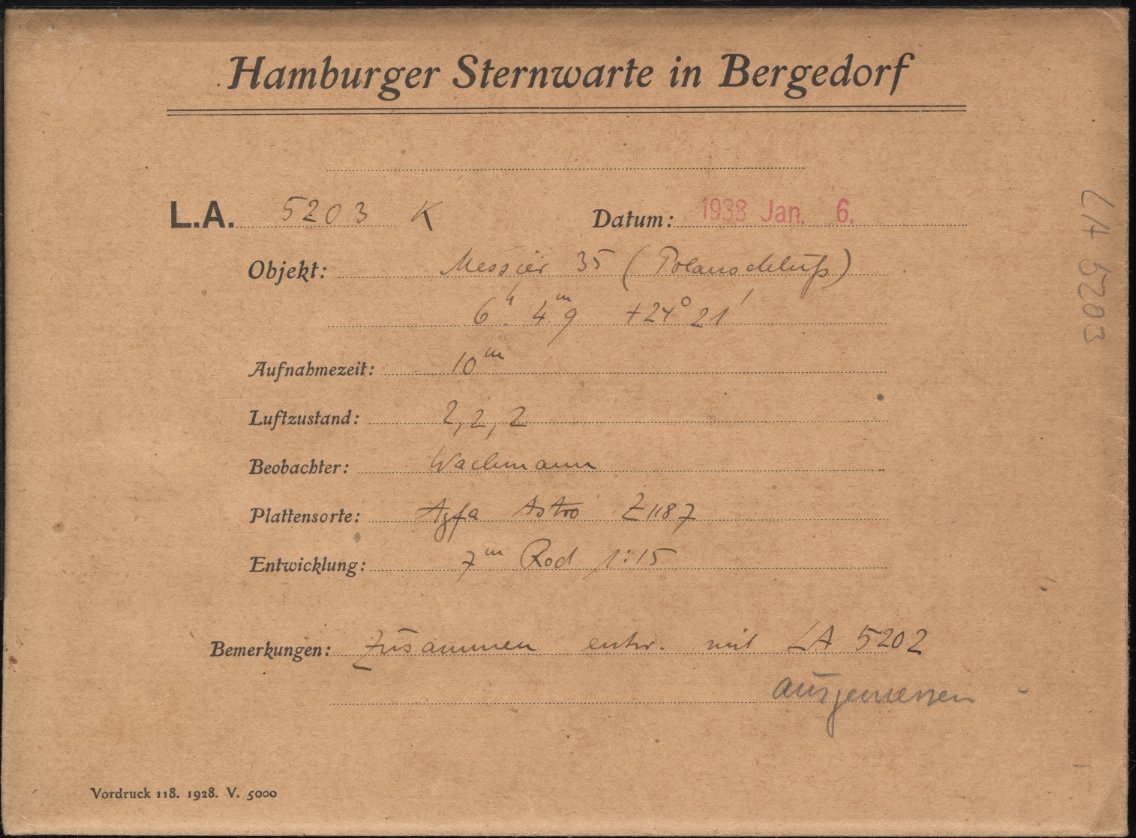 Hamburger Sternwarte in Bergedorf
L.A. 5203 K Datum: 1938 Jan. 6.
Objekt: Messier 35 (Polanschluß)
6h 4m9 +24° 21'
Aufnahmezeit: 10m
Luftzustand: 2, 2, 2
Beobachter: Wachmann
Plattensorte: Agfa Astro Z1187
Entwicklung: 7m Rod 1:15
Bemerkungen: Zusammen entw. mit LA 5202
ausgemessen
Vordruck 118. 1928. V. 5000
LA 5203